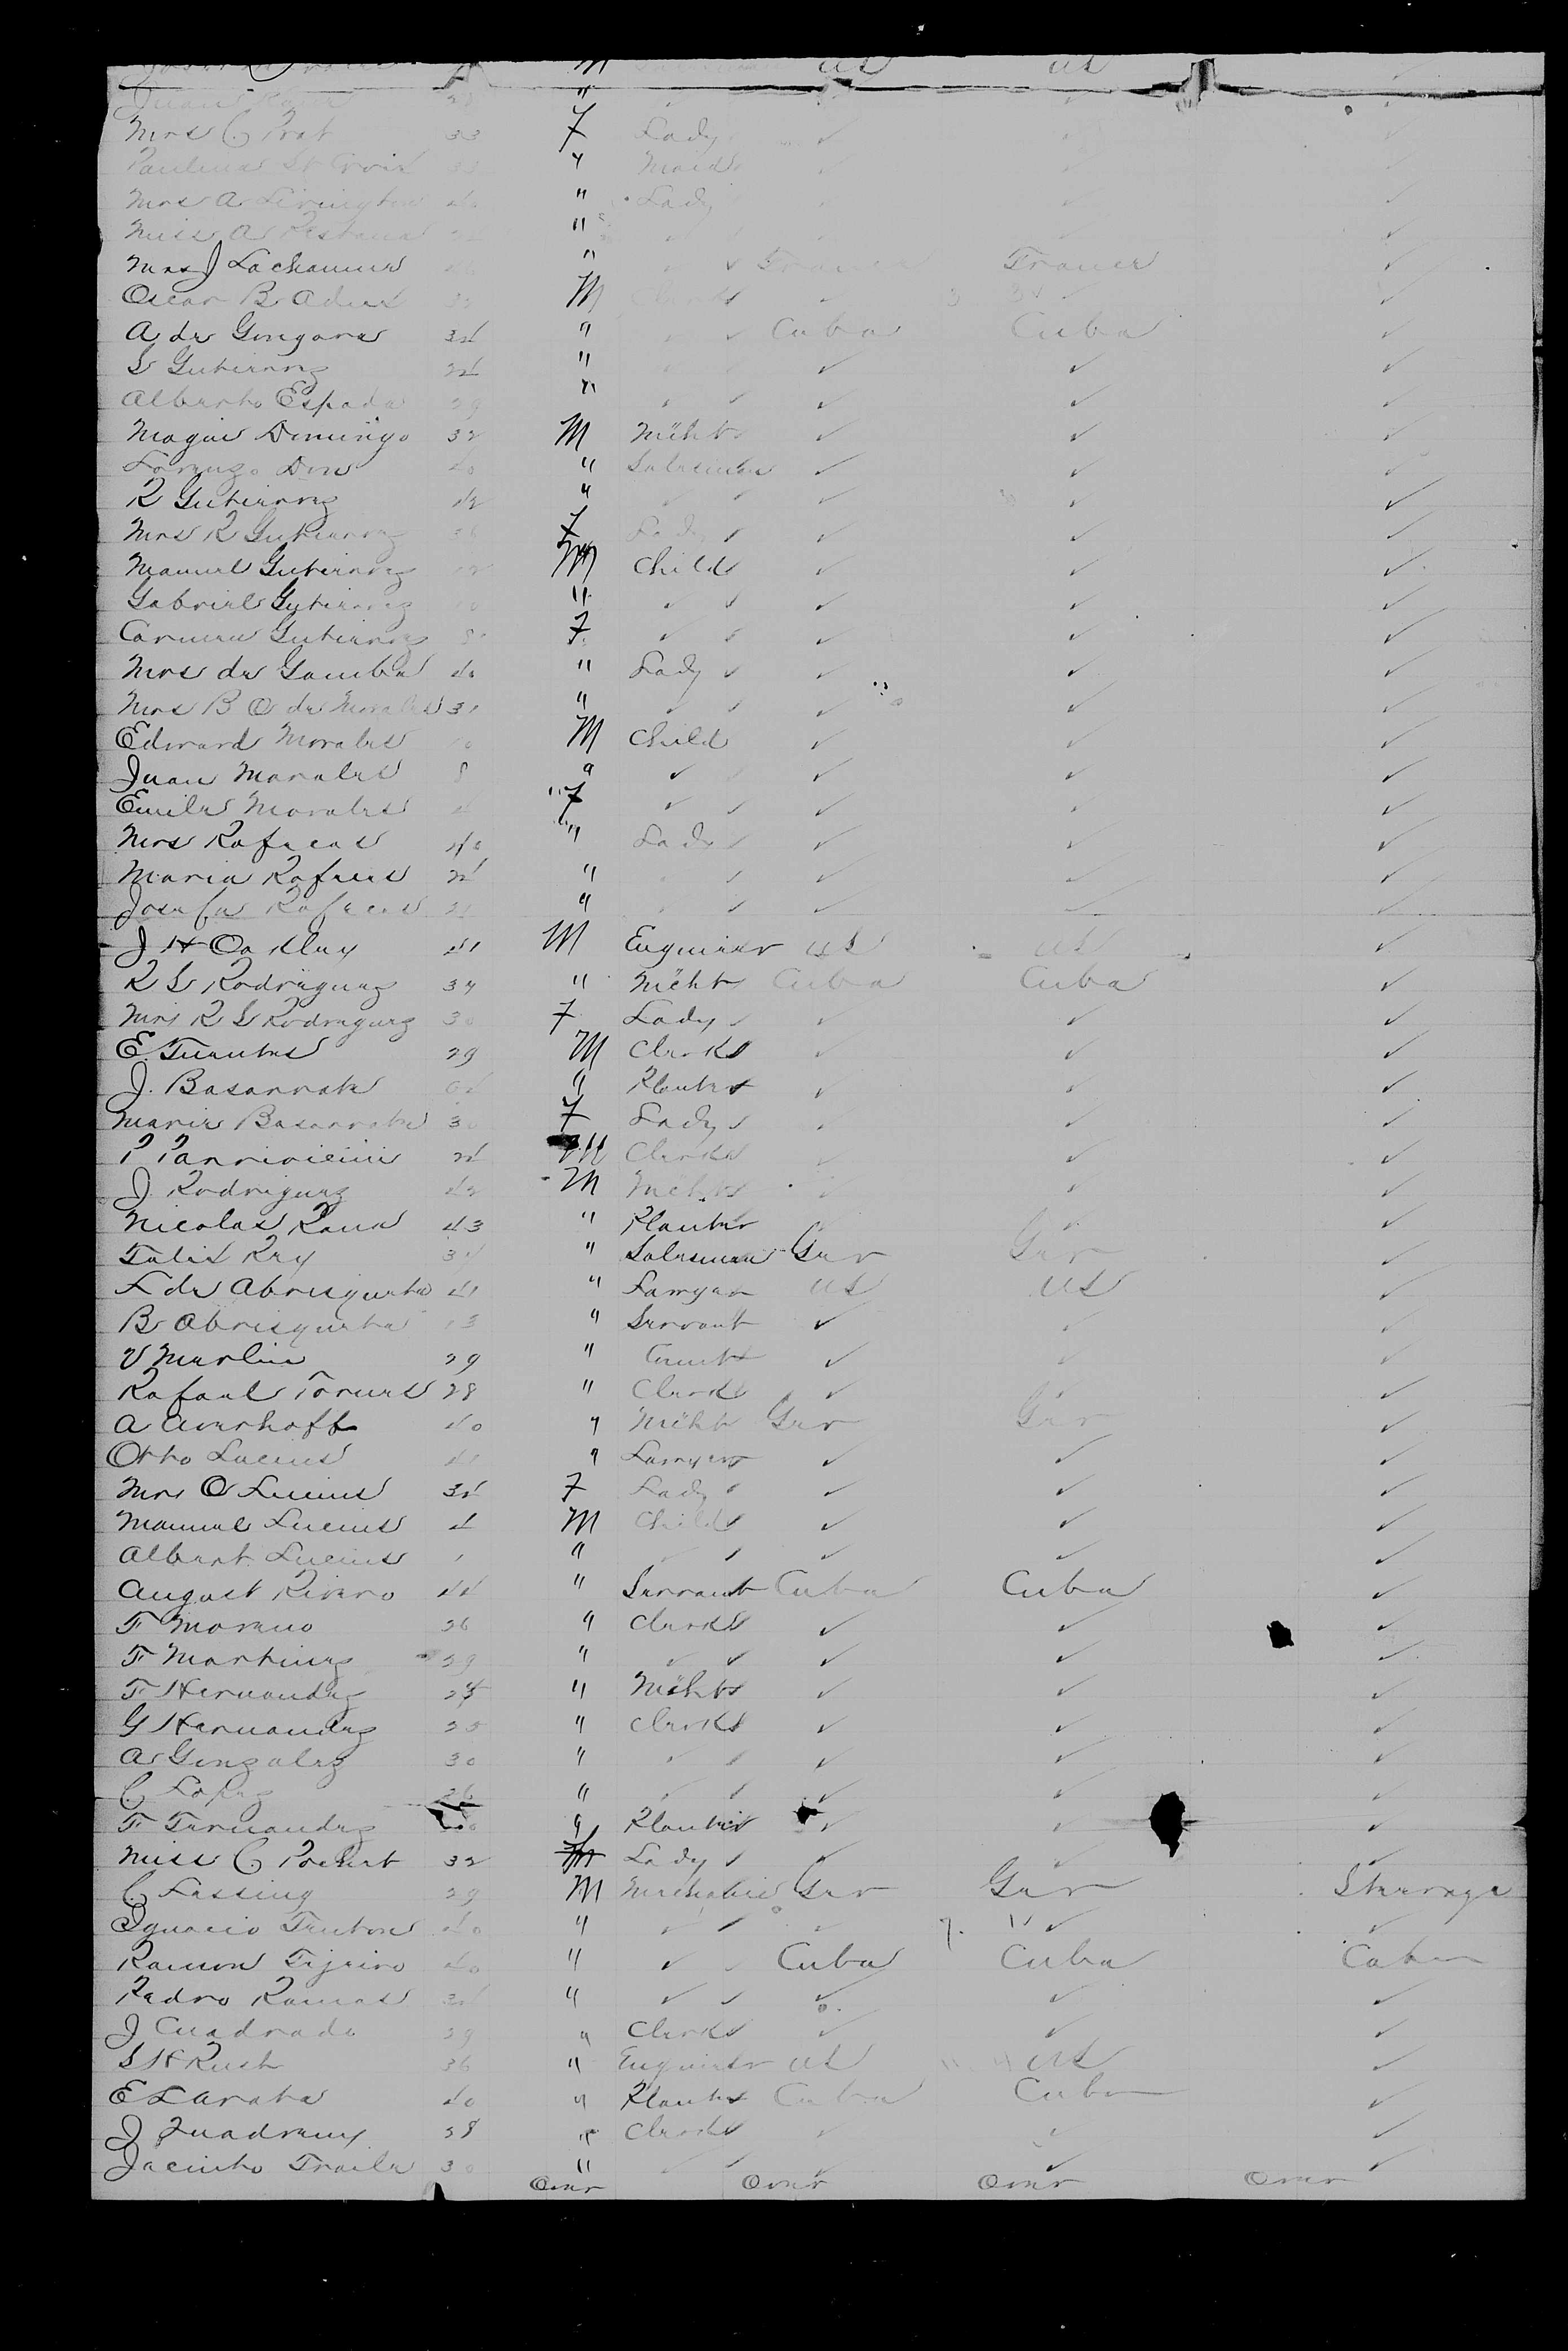 M US US
Juan "
Mrs C Prat 33 F Lady ✓
Paulina St Croix " Maid
Mrs A Livingston 40 " Lady
Miss A Pestana "
Mrs J Lachaume " ✓ France France ✓
Oscar B Adue M Clerk ✓ ✓
A de Gongora 34 " ✓ Cuba Cuba ✓
S Gutierrez 24 " ✓ ✓ ✓
Alberto Espada 29 " ✓ ✓ ✓
Magin Domingo 32 M Mcht ✓ ✓ ✓
Lorenzo Don 40 " Salesman ✓ ✓ ✓
R Gutierrez 42 " ✓ ✓ ✓ ✓
Mrs R Gutierrez 36 F Lady ✓ ✓ ✓
Manuel Gutierrez 12 M Child ✓ ✓ ✓
Gabriel Gutierrez 10 " ✓ ✓ ✓ ✓
Carmen Gutierrez 8 F ✓ ✓ ✓ ✓
Mrs de Gamba 40 " Lady ✓ ✓ ✓
Mrs B O de Morales 31 " ✓ ✓ ✓ ✓
Edward Morales 10 M Child ✓ ✓ ✓
Juan Morales 8 " ✓ ✓ ✓ ✓
Emile Morales 4 F ✓ ✓ ✓ ✓
Mrs Rafecas 40 " Lady ✓ ✓ ✓
Maria Rafecas 24 " ✓ ✓ ✓
Josefa Rafecas 21 " ✓ ✓ ✓
J H Oakley 41 M Engineer US US ✓
R S Rodriguez 34 " Mcht Cuba Cuba ✓
Mrs R S Rodriguez 30 F Lady ✓ ✓ ✓
E Fuentes 29 M Clerk ✓ ✓ ✓
J. Basarrate 64 " Planter ✓ ✓ ✓
Marie Basarrate 30 F Lady ✓ ✓ ✓
P 24 M Clerk ✓ ✓ ✓
J Rodriguez 42 M Mcht ✓ ✓ ✓
Nicolas Pana 43 " Planter ✓ ✓ ✓
Felix Rey 34 " Salesman Ger Ger ✓
F de Abrisqueta 41 " Lawyer US US ✓
B Abrisqueta 13 " Servant ✓ ✓ ✓
V Merlin 29 " Count ✓ ✓ ✓
Rafael Torres 28 " Clerk ✓ ✓ ✓
A Averhoff 40 " Mcht Ger Ger ✓
Otto Lucius 41 " Lawyer ✓ ✓ ✓
Mrs O Lucius 34 F Lady ✓ ✓ ✓
Manuel Lucius 4 M Child ✓ ✓ ✓
Albert Lucius 1 " ✓ ✓ ✓ ✓
August Rivero 44 " Servant Cuba Cuba ✓
F Moreno 26 " Clerk ✓ ✓ ✓
F Martinez 29 " ✓ ✓ ✓ ✓
F Hernandez 24 " Mcht ✓ ✓ ✓
G Hernandez 25 " Clerk ✓ ✓ ✓
A Gonzalez 30 " ✓ ✓ ✓ ✓
C Lopez 26 " ✓ ✓ ✓ ✓
F Fernandez " Planter ✓ ✓ ✓
Miss C Poehert 32 F Lady ✓ ✓ ✓
C Lessing 29 M Mechanic Ger Ger Steerage
Ignacio 40 " ✓ ✓ ✓ ✓
Ramon Tijeiro 40 " ✓ Cuba Cuba Cabin
Pedro Ramos 34 " ✓ ✓ ✓ ✓
J Cuadrado 29 " Clerk ✓ ✓ ✓
S H Rush 36 " Engineer US US ✓
E Zarate 40 " Planter Cuba Cuba ✓
J Quadreny 28 " Clerk ✓ ✓ ✓
Jacinto Fraile 30 " ✓ ✓ ✓ ✓
Over Over Over Over